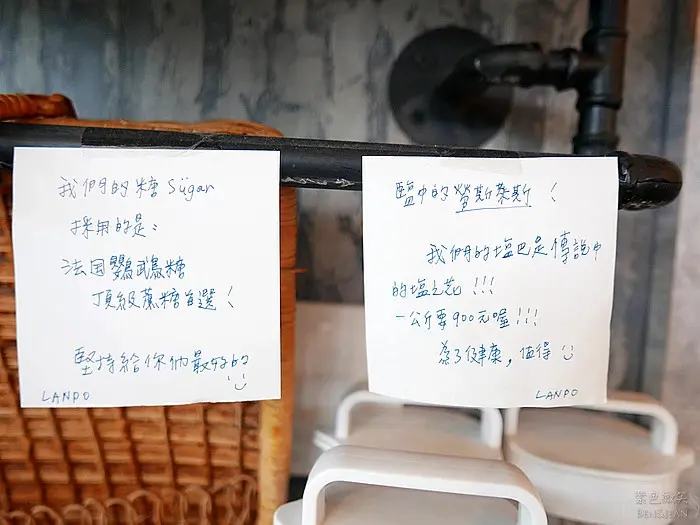 我們的糖 Sügar
採用的是：
法国鸚鵡糖
頂級蔗糖首選！
堅持給你們最好的
LANPO
鹽中的勞斯萊斯！
我們的塩巴是傳說中
的塩之花!!!
一公斤要900元喔!!!
為了健康，值得
LANPO
紫色微笑
BEN&JEAN